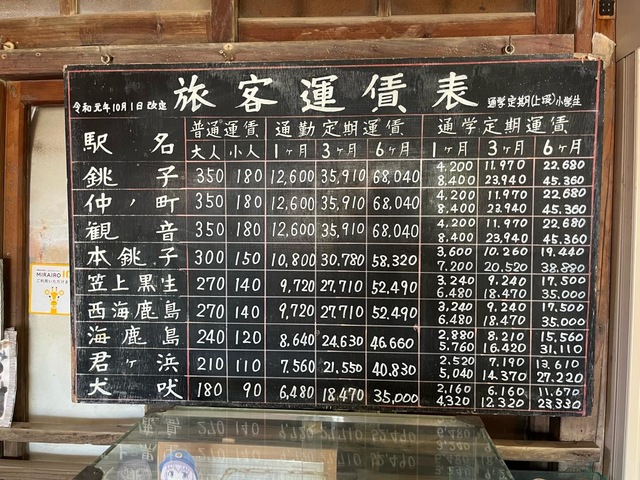 令和元年10月1日改定 旅客運賃表 通学定期(上段)小学生
駅名 普通運賃 通勤定期運賃 通学定期運賃
大人 小人 1ヶ月 3ヶ月 6ヶ月 1ヶ月 3ヶ月 6ヶ月
銚子 350 180 12,600 35,910 68,040 4,200 11,970 22,680
8,400 23,940 45,360
仲ノ町 350 180 12,600 35,910 68,040 4,200 11,970 22,680
8,400 23,940 45,360
観音 350 180 12,600 35,910 68,040 4,200 11,970 22,680
8,400 23,940 45,360
本銚子 300 150 10,800 30,780 58,320 3,600 10,260 19,440
7,200 20,520 38,880
笠上黒生 270 140 9,720 27,710 52,490 3,240 9,240 17,500
6,480 18,470 35,000
西海鹿島 270 140 9,720 27,710 52,490 3,240 9,240 17,500
6,480 18,470 35,000
海鹿島 240 120 8,640 24,630 46,660 2,880 8,210 15,560
5,760 16,420 31,110
君ヶ浜 210 110 7,560 21,550 40,830 2,520 7,190 13,610
5,040 14,370 27,220
犬吠 180 90 6,480 18,470 35,000 2,160 6,160 11,670
4,320 12,320 23,330
MIRAIRO